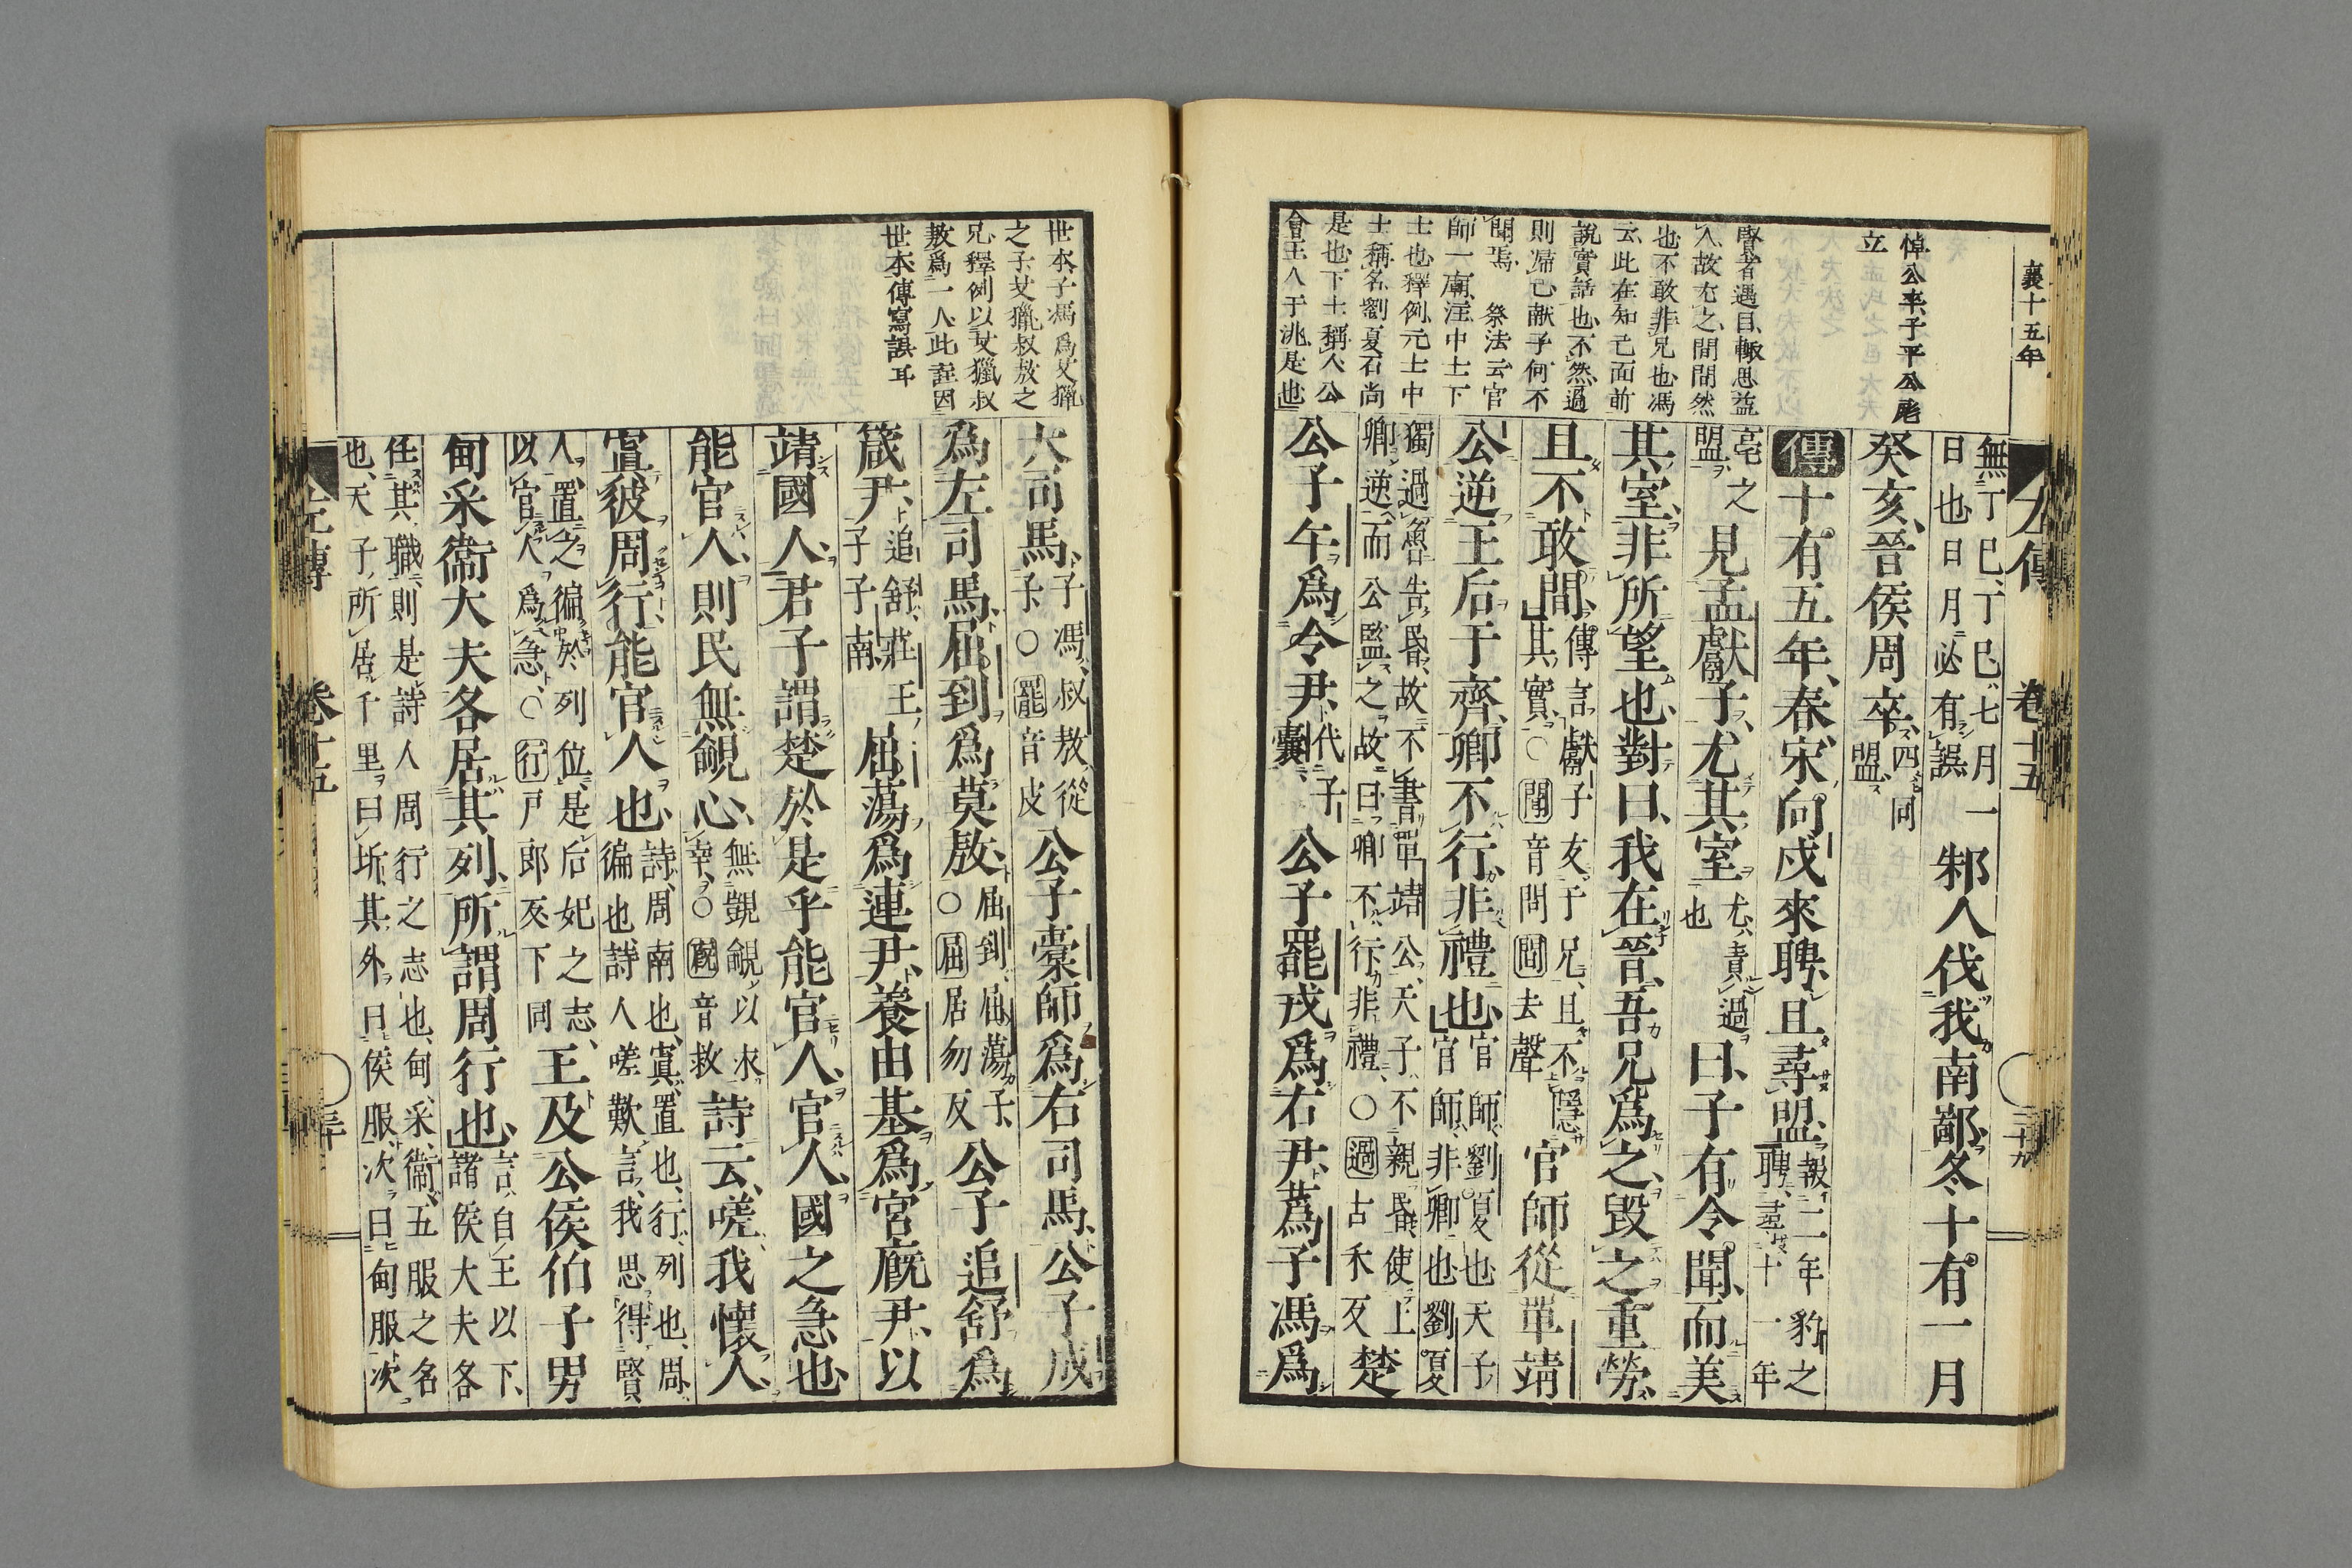 襄十五年
左傳 卷十五 二十九
悼公卒子平公彪
立
賢者遇日輙思益
人故尤之間間然
也不敢非兄也馮
云此在知己面前
說實話也不然過
則㱕已献子何不
聞焉 祭法云官
師一廟注中士下
士也釋例元士中
士稱名劉夏石尚
是也下士稱人公
會王人于洮是也
無丁巳、丁巳、七月一
日也日月必有誤
邾人伐我南鄙、冬、十有一月
癸亥、晉侯周卒、四同
盟、
傳十有五年、春、宋向戌來聘、且尋盟、報二年豹之
聘、尋十一年
亳之
盟、見孟獻子、尤其室、尤、責過
也曰、子有令聞、而美
其室、非所望也、對曰、我在晉、吾兄爲之、毀之重勞、
且不敢間、傳言獻子友于兄、且不隱
其實、○間音間聞去聲
官師從單靖
公逆王后于齊、卿不行、非禮也、官師、劉夏也天子
官師、非卿也、劉夏
獨過魯告昏、故不書單靖公、天子不親昏、使上
卿逆而公監之故曰卿不行、非禮、○過古禾反
楚
公子午爲令尹、代子
囊、公子罷戎爲右尹、蒍子馮爲
世本、子馮爲艾獵
之子、艾獵叔敖之
兄、釋例以艾獵叔
敖爲一人、此誰因
世本傳寫誤耳
大司馬、子馮、叔敖從
子、○罷音皮
公子橐師爲右司馬、公子成
爲左司馬、屈到爲莫敖、屈到、屈蕩子、
○屈居勿反
公子追舒爲
箴尹、追舒、莊王
子子南
屈蕩爲連尹、養由基爲宮廄尹、以
靖國人、君子謂楚於是乎能官人、官人、國之急也、
能官人、則民無覦心、無覬覦以求
幸、○廄音救
詩云、嗟我懷人、
寘彼周行、能官人也、詩、周南也、寘、置也、行、列也、周、
徧也、詩人嗟歎、言、我思得賢
人、置之徧於列位、是后妃之志、
以官人、爲急、○行戸郎反下同
王及公侯伯子男
甸采衛大夫各居其列、所謂周行也、言、自王以下、
諸侯大夫各
任其職、則是詩人周行之志也、甸、采、衛、五服之名
也、天子所居、千里曰圻、其外、曰侯服、次曰甸服、次
左傳 卷十五 三十